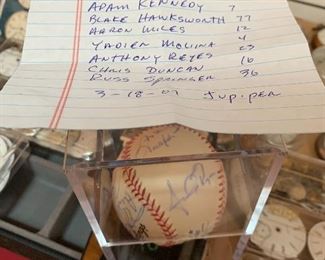 ADAM KENNEDY 7
BLAKE HAWKSWORTH 77
AARON MILES 12
YADIER MOLINA 4
ANTHONY REYES 23
CHRIS DUNCAN 16
RUSS SPRINGER 36
3-18-07 Jup. per